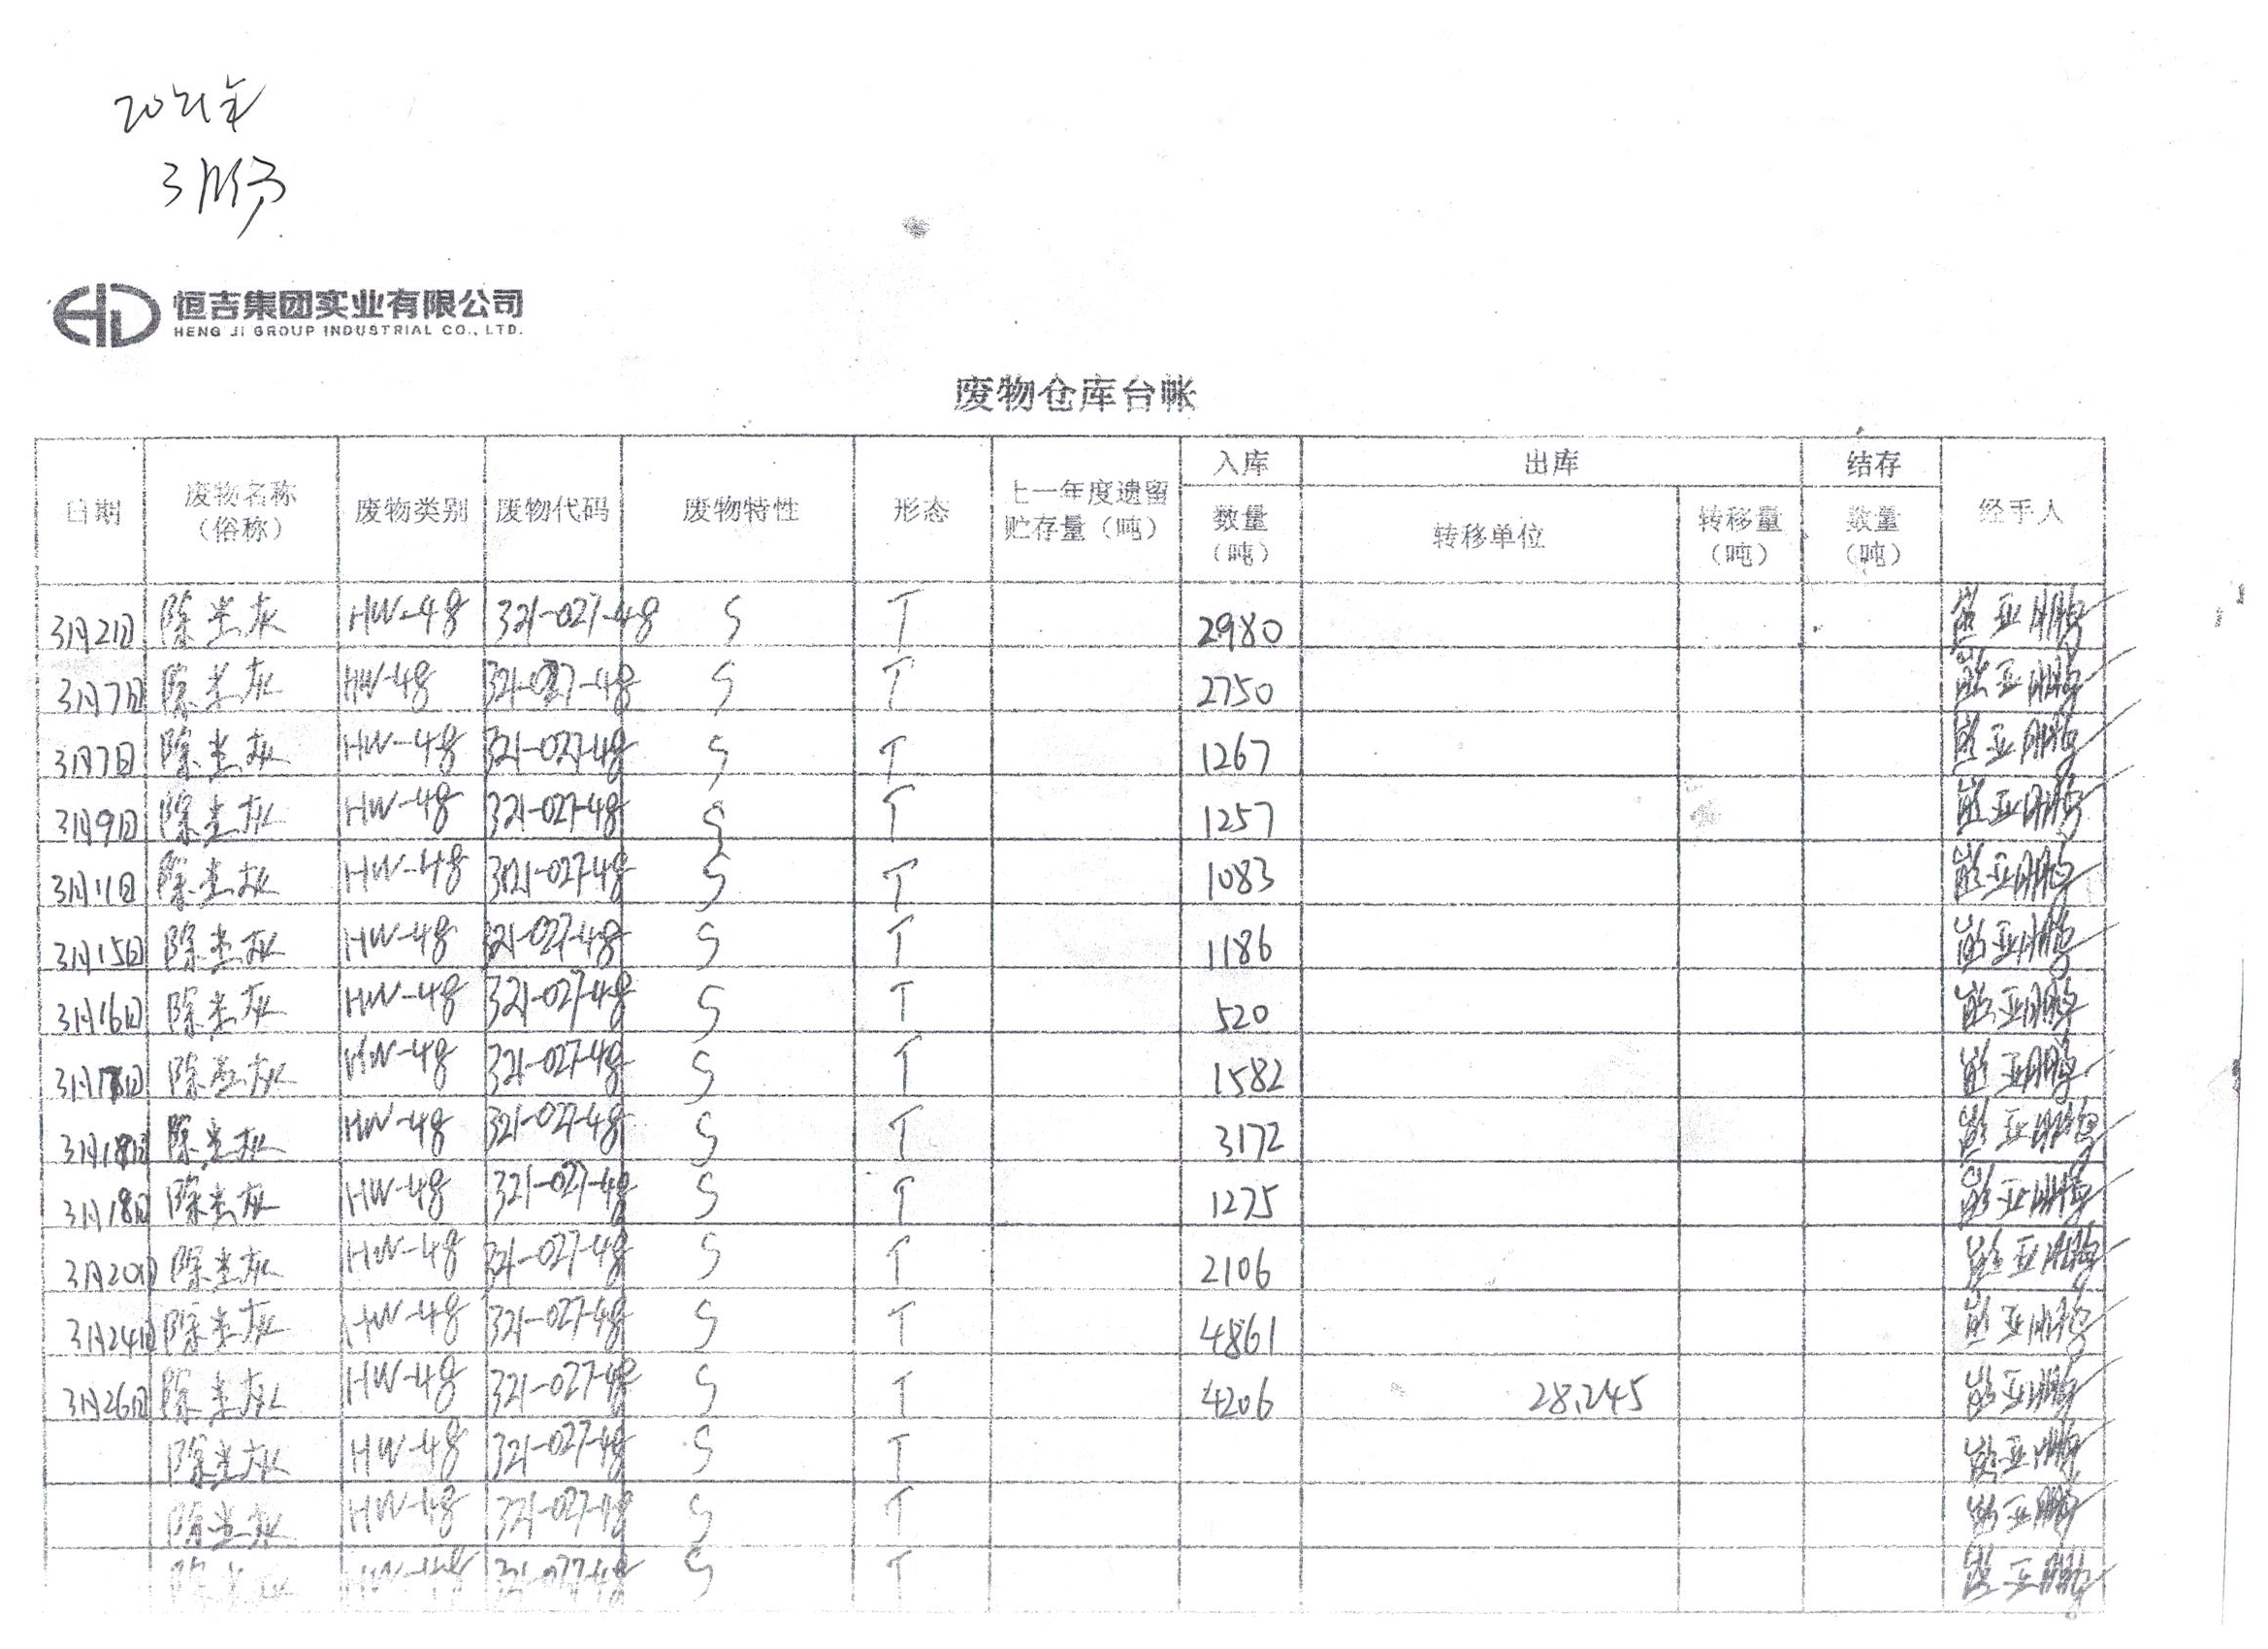 2021年
3月份
恒吉集团实业有限公司
HENG JI GROUP INDUSTRIAL CO., LTD.
废物仓库台帐
日期 废物名称（俗称） 废物类别 废物代码 废物特性 形态 上一年度遗留贮存量（吨） 入库 数量（吨） 出库 转移单位 转移量（吨） 结存 数量（吨） 经手人
3月2日 除尘灰 HW-48 321-027-48 S T 2980
3月7日 除尘灰 HW-48 321-027-48 S T 2750
3月7日 除尘灰 HW-48 321-027-48 S T 1267
3月9日 除尘灰 HW-48 321-027-48 S T 1257
3月11日 除尘灰 HW-48 321-027-48 S T 1083
3月15日 除尘灰 HW-48 321-027-48 S T 1186
3月16日 除尘灰 HW-48 321-027-48 S T 520
除尘灰 HW-48 321-027-48 S T 1582
3月18日 除尘灰 HW-48 321-027-48 S T 3172
3月18日 除尘灰 HW-48 321-027-48 S T 1275
3月20日 除尘灰 HW-48 321-027-48 S T 2106
3月24日 除尘灰 HW-48 321-027-48 S T 4861
3月26日 除尘灰 HW-48 321-027-48 S T 4206 28.245
除尘灰 HW-48 321-027-48 S T
除尘灰 HW-48 321-027-48 S T
除尘灰 HW-48 321-027-48 S T